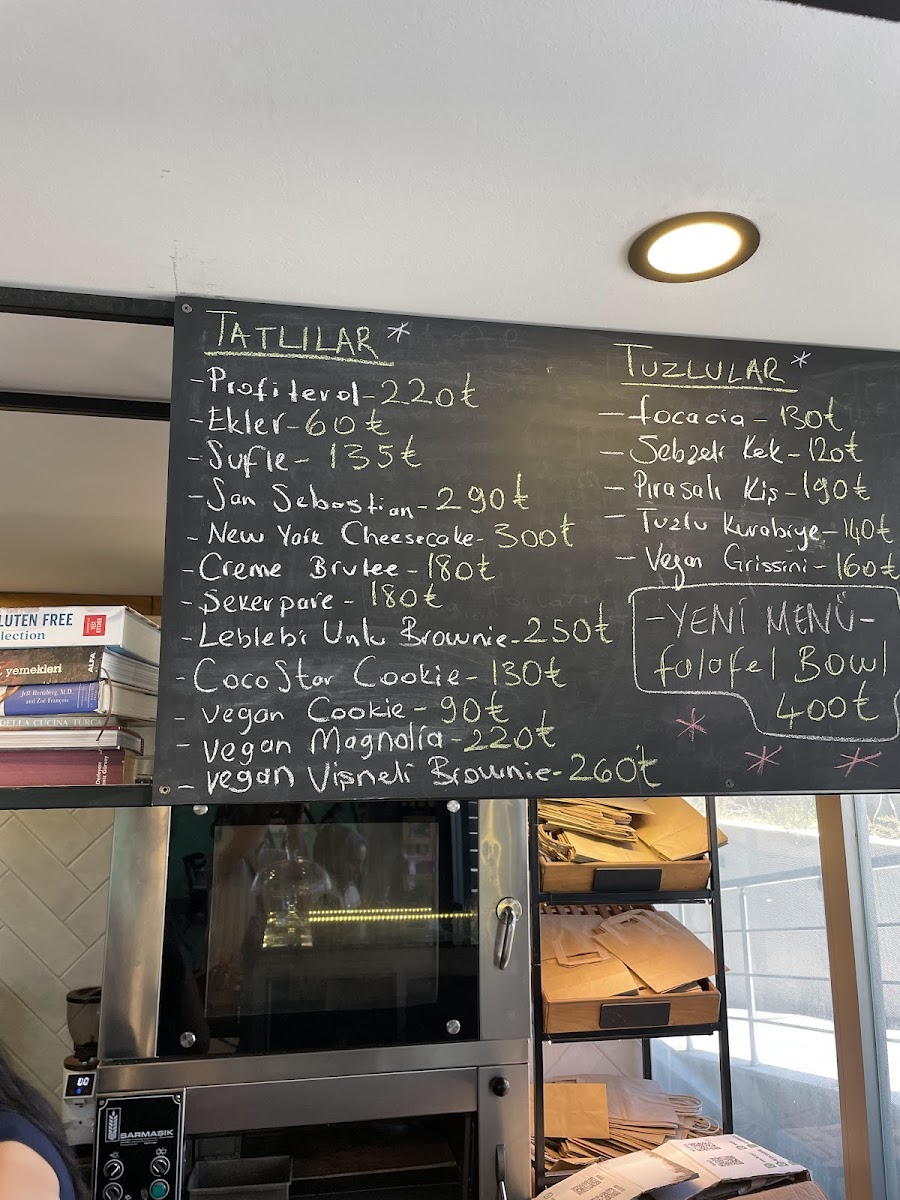 TATLILAR *
- Profiterol - 220₺
- Ekler - 60₺
- Sufle - 135₺
- San Sebastian - 290₺
- New York Cheesecake - 300₺
- Creme Brulee - 180₺
- Şekerpare - 180₺
- Leblebi Unlu Brownie - 250₺
- CocoStar Cookie - 130₺
- Vegan Cookie - 90₺
- Vegan Magnolia - 220₺
- Vegan Vişneli Brownie - 260₺
TUZLULAR *
- focacia - 130₺
- Sebzeli Kek - 120₺
- Pırasalı Kiş - 190₺
- Tuzlu Kurabiye - 140₺
- Vegan Grissini - 160₺
- YENİ MENÜ -
falafel Bowl
400₺
LUTEN FREE
llection
yemekleri
ALFA
Jeff Hertzberg, M.D.
and Zoë François
DELLA CUCINA TURCA
SARMAŞIK